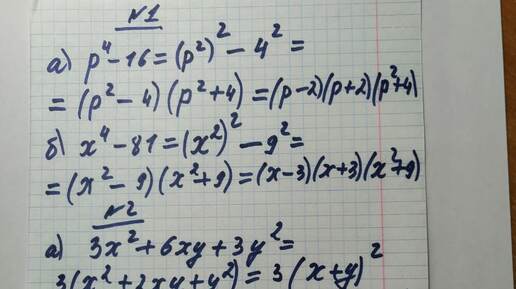 №1
а) p⁴ - 16 = (p²)² - 4² =
= (p² - 4) (p² + 4) = (p - 2)(p + 2)(p² + 4)
б) x⁴ - 81 = (x²)² - 9² =
= (x² - 9)(x² + 9) = (x - 3)(x + 3)(x² + 9)
№2
а) 3x² + 6xy + 3y² =
3(x² + 2xy + y²) = 3 (x + y)²